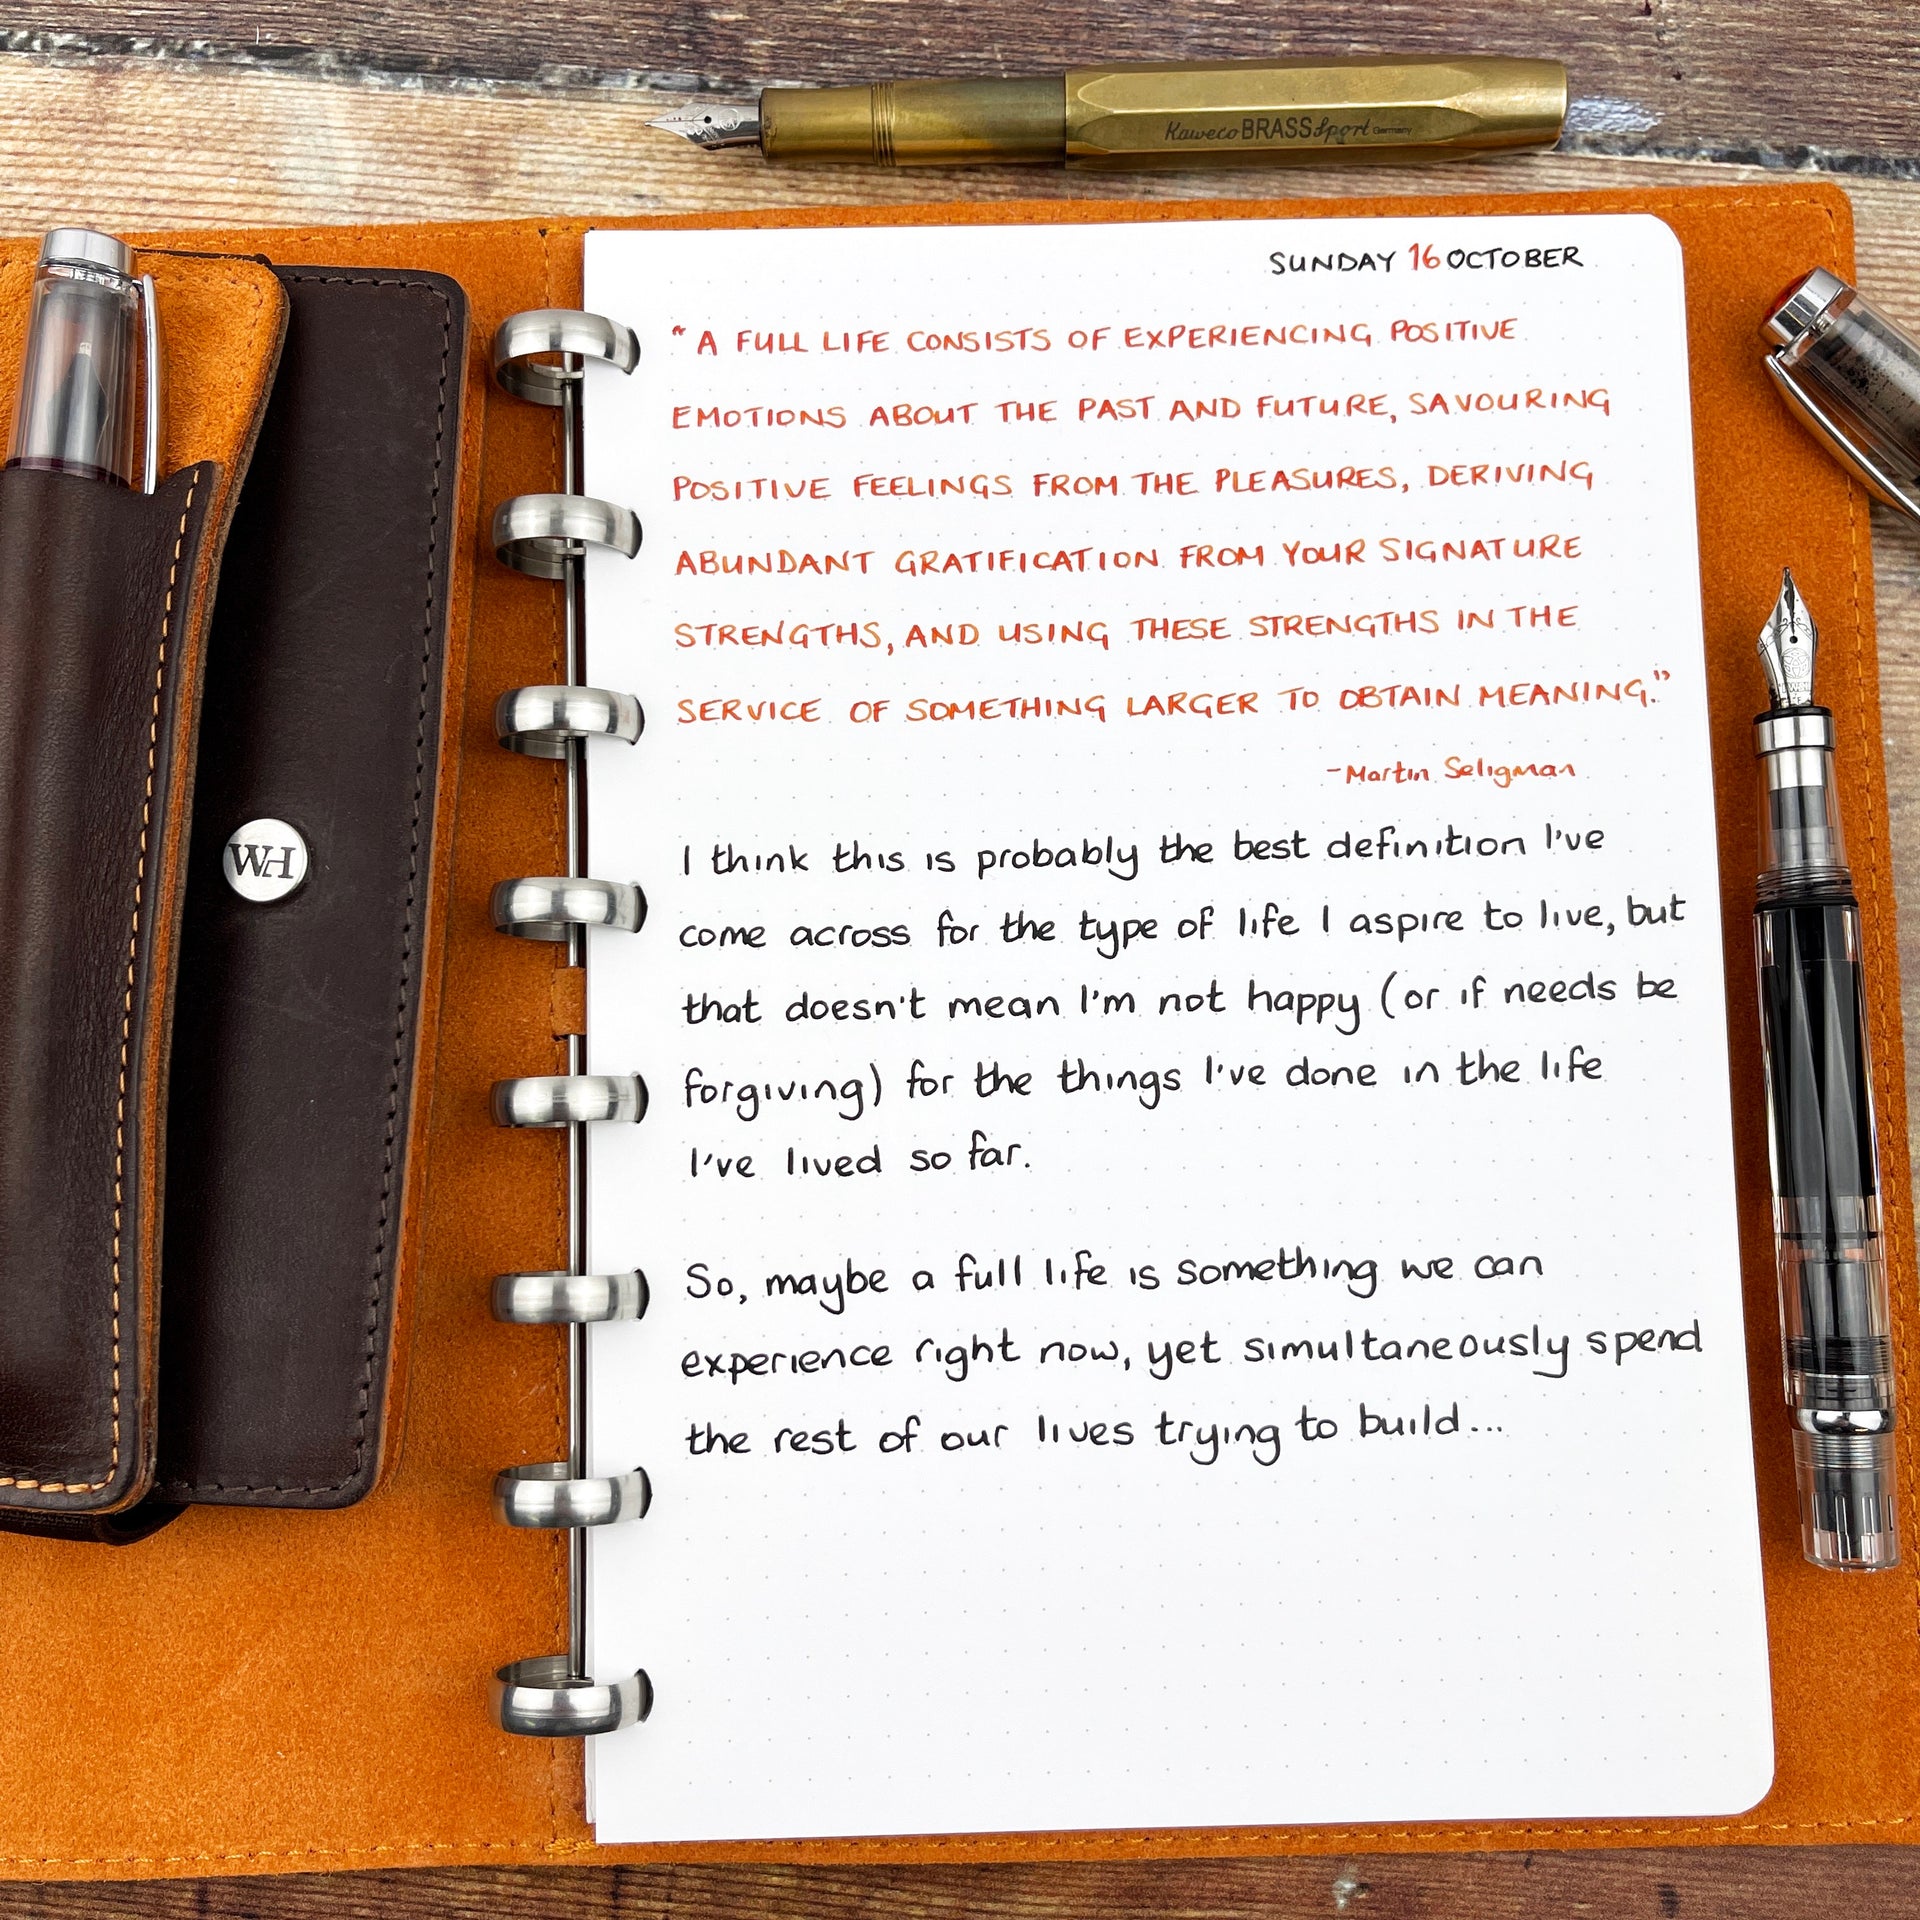 Kaweco BRASS Sport Germany
SUNDAY 16 OCTOBER
"A FULL LIFE CONSISTS OF EXPERIENCING POSITIVE
EMOTIONS ABOUT THE PAST AND FUTURE, SAVOURING
POSITIVE FEELINGS FROM THE PLEASURES, DERIVING
ABUNDANT GRATIFICATION FROM YOUR SIGNATURE
STRENGTHS, AND USING THESE STRENGTHS IN THE
SERVICE OF SOMETHING LARGER TO OBTAIN MEANING."
-Martin Seligman
I think this is probably the best definition I've
come across for the type of life I aspire to live, but
that doesn't mean I'm not happy (or if needs be
forgiving) for the things I've done in the life
I've lived so far.
So, maybe a full life is something we can
experience right now, yet simultaneously spend
the rest of our lives trying to build...
WH